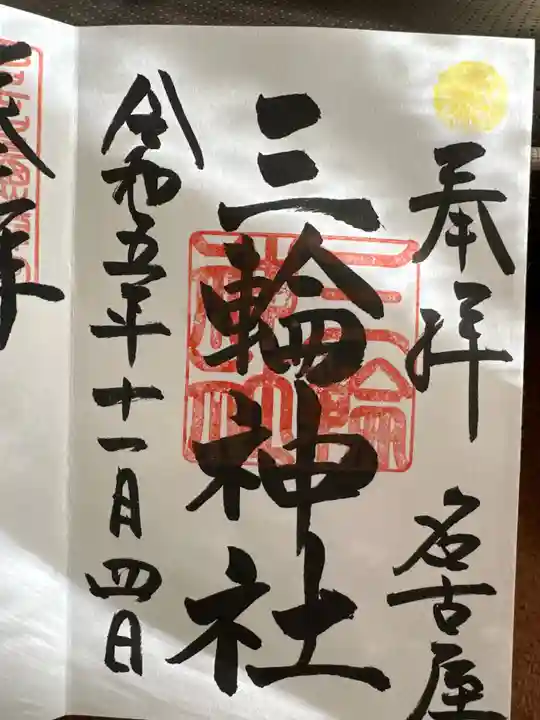 奉拝 名古屋
三輪神社
令和五年十一月四日
奉拝